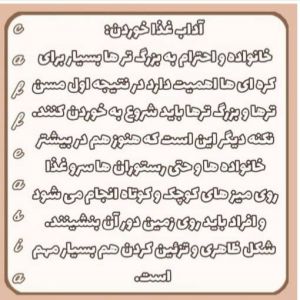 آداب غذا خوردن:
خانواده و احترام به بزرگ تر ها بسیار برای
کره ای ها اهمیت دارد در نتیجه اول مسن
ترها و بزرگ ترها باید شروع به خوردن کنند.
نکته دیگر این است که هنوز هم در بیشتر
خانواده ها و حتی رستوران ها سرو غذا
روی میز های کوچک و کوتاه انجام می شود
و افراد باید روی زمین دور آن بنشینند.
شکل ظاهری و تزئین کردن هم بسیار مهم
است.